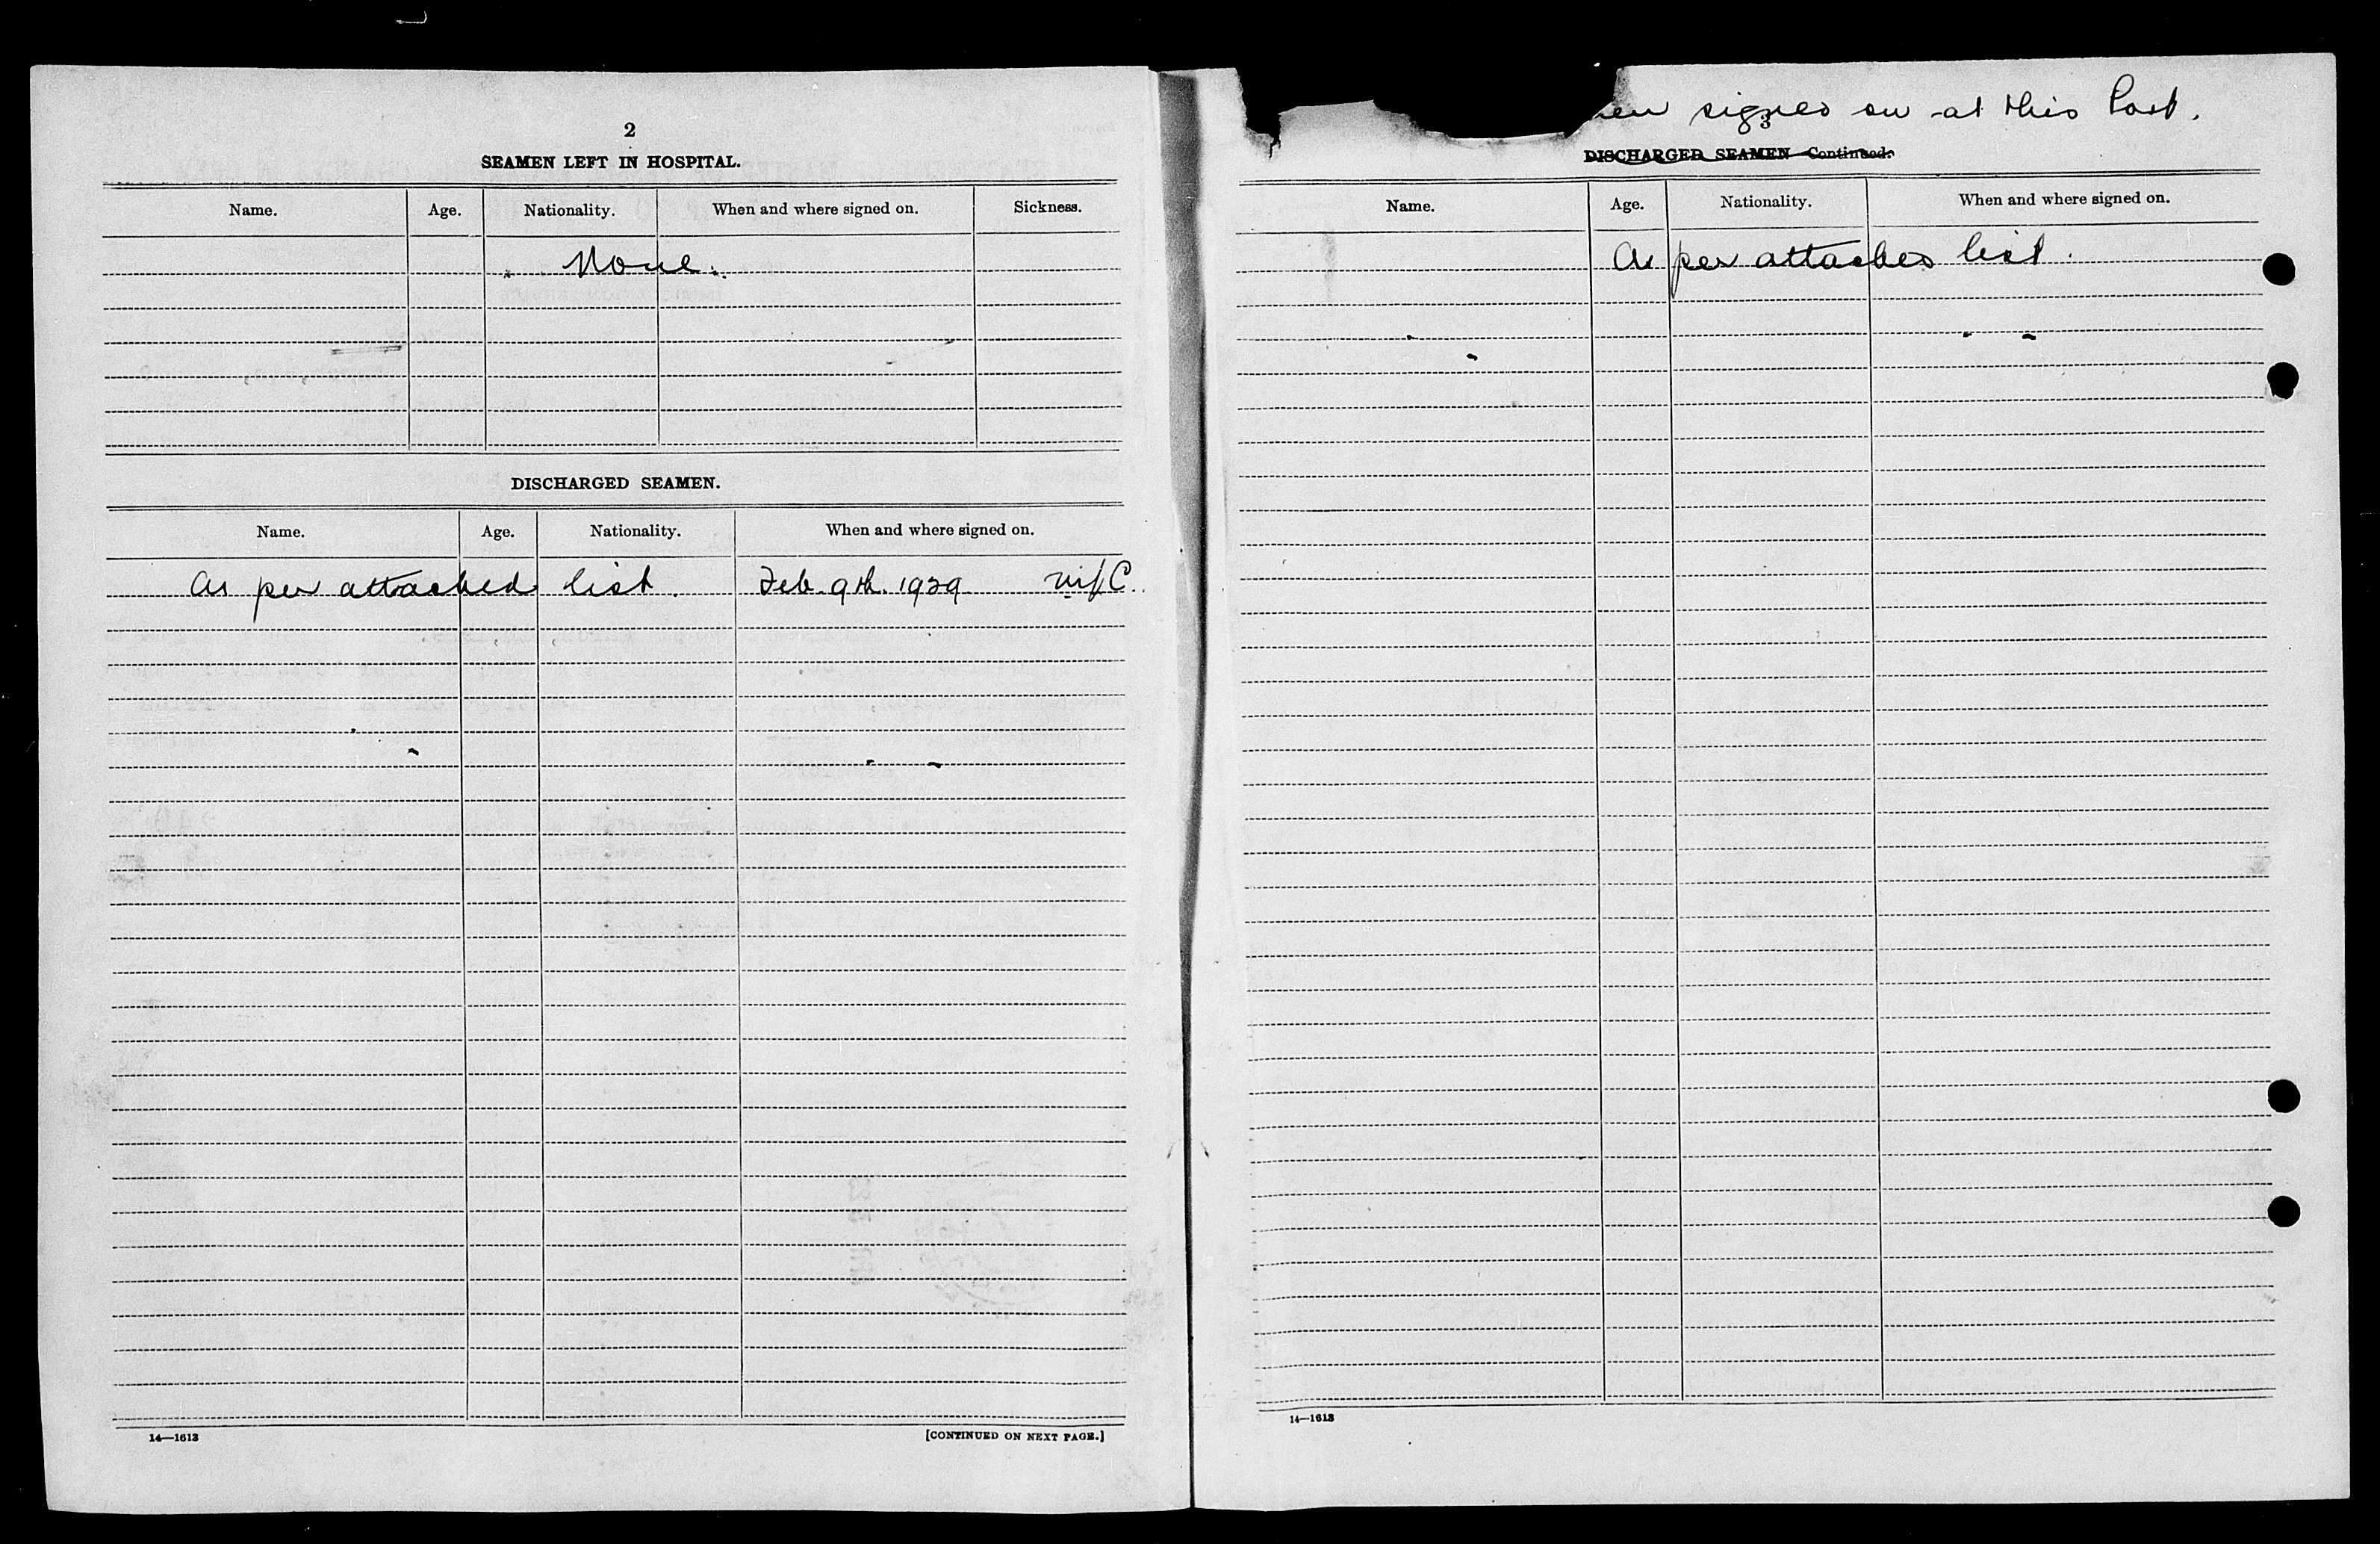 2
SEAMEN LEFT IN HOSPITAL.
Name. Age. Nationality. When and where signed on. Sickness.
None.
DISCHARGED SEAMEN.
Name. Age. Nationality. When and where signed on.
As per attached list. Feb. 9th. 1929
14—1613
[CONTINUED ON NEXT PAGE.]
signed on at this Port.
3
DISCHARGED SEAMEN—Continued.
Name. Age. Nationality. When and where signed on.
As per attached list.
14—1613